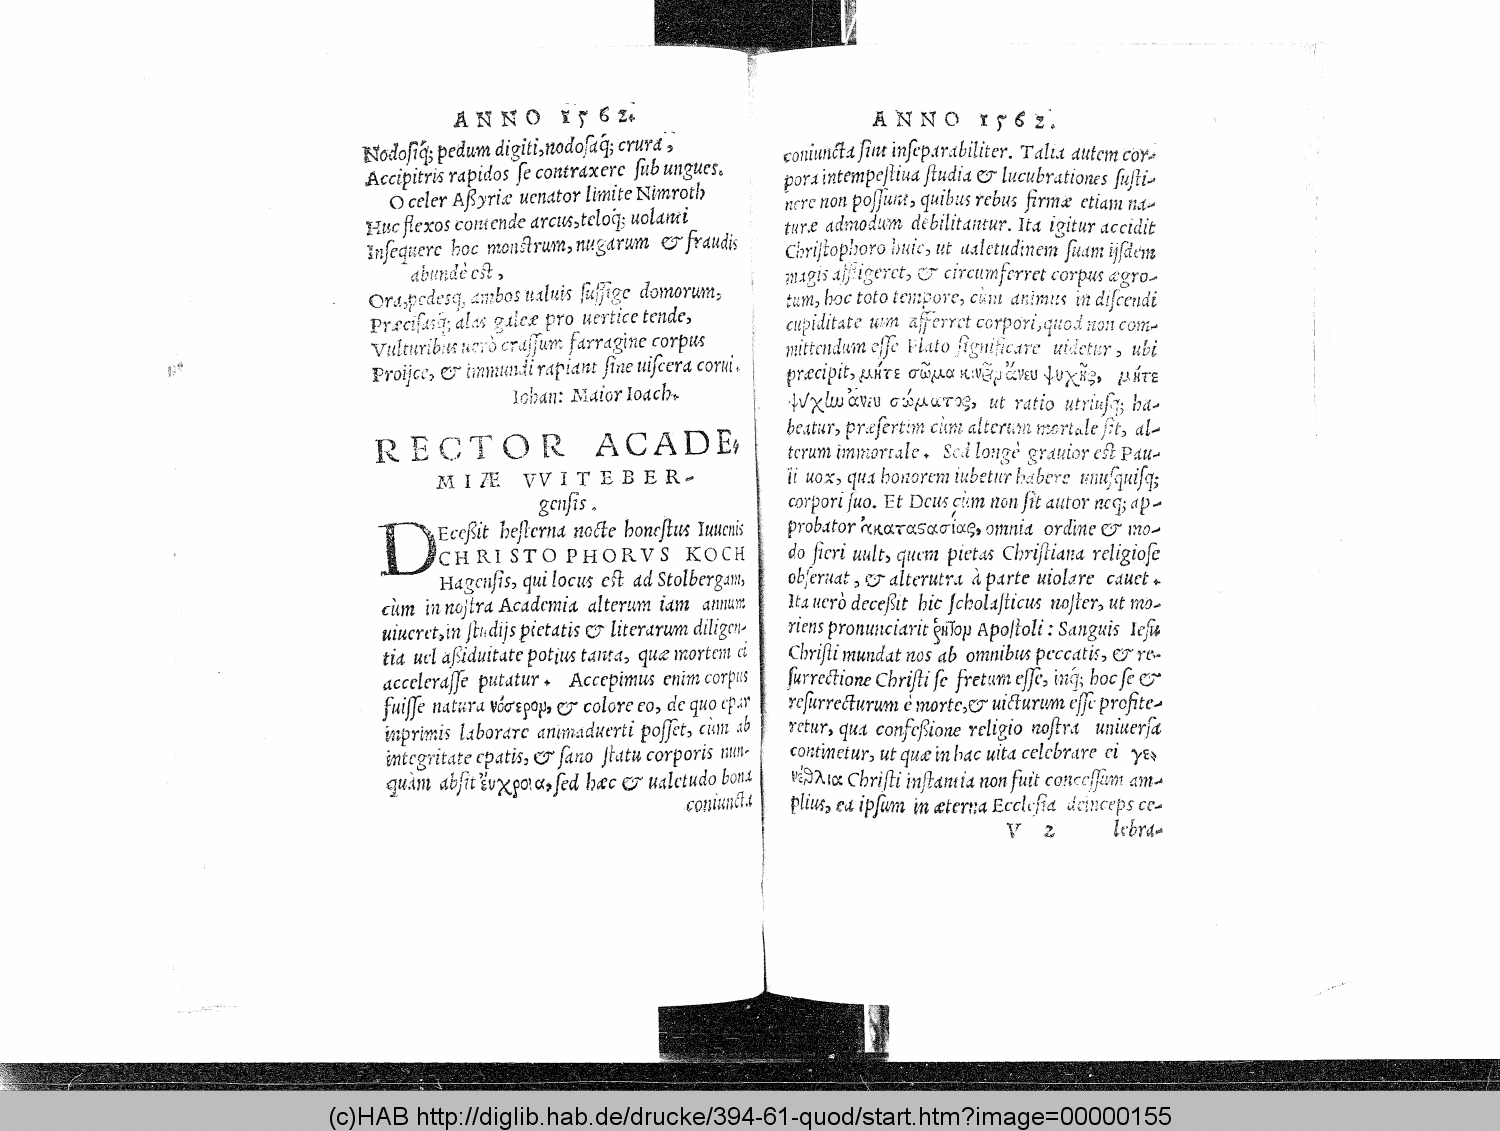 ANNO 1562.
Nodosiq́; pedum digiti, nodosaq́; crura,
Accipitris rapidos se contraxere sub ungues.
O celer Aßyriæ uenator limite Nimroth
Huc flexos contende arcus, teloq́; uolanti
Insequere hoc monstrum, nugarum & fraudis
abundè est,
Ora, pedesq́, ambos ualuis suffige domorum,
Præcisasq́; alas galeæ pro uertice tende,
Vulturibus uerò crassum farragine corpus
Proijce, & immundi rapiant sine uiscera corui.
Iohan: Maior Ioach.
RECTOR ACADE,
MIÆ VVITEBER-
gensis.
DEceßit hesterna nocte honestus Iuuenis
CHRISTOPHORVS KOCH
Hagensis, qui locus est ad Stolbergam,
cùm in nostra Academia alterum iam annum
uiueret, in studijs pietatis & literarum diligen-
tia uel aßiduitate potius tanta, quæ mortem ei
accelerasse putatur. Accepimus enim corpus
fuisse natura νόσερομ, & colore eo, de quo epar
inprimis laborare animaduerti posset, cùm ab
integritate epatis, & sano statu corporis nun-
quàm absit ἔυχροια, sed hæc & ualetudo bona
coniuncta
ANNO 1562.
coniuncta sint inseparabiliter. Talia autem cor-
pora intempestiua studia & lucubrationes susti-
nere non possunt, quibus rebus firmæ etiam na-
turæ admodum debilitantur. Ita igitur accidit
Christophoro huic, ut ualetudinem suam ijsdem
magis affligeret, & circumferret corpus ægro-
tum, hoc toto tempore, cùm animus in discendi
cupiditate uim afferret corpori, quod non com-
mittendum esse Plato significare uidetur, ubi
præcipit, μήτε σῶμα κινῆμ ἄνευ ψυχῆς, μήτε
ψυχὴν ἄνευ σώματος, ut ratio utriusq́; ha-
beatur, præsertim cùm alterum mortale sit, al-
terum immortale. Sed longè grauior est Pau-
li uox, qua honorem iubetur habere unusquisq́;
corpori suo. Et Deus cùm non sit autor neq́; ap-
probator ἀκαταστασίας, omnia ordine & mo-
do fieri uult, quem pietas Christiana religiose
obseruat, & alterutra à parte uiolare cauet.
Ita uerò deceßit hic scholasticus noster, ut mo-
riens pronunciarit ῥητομ Apostoli: Sanguis Iesu
Christi mundat nos ab omnibus peccatis, & re-
surrectione Christi se fretum esse, inq́; hoc se &
resurrecturum è morte, & uicturum esse profite-
retur, qua confeßione religio nostra uniuersa
continetur, ut quæ in hac uita celebrare ei γε-
νέθλια Christi instantia non fuit concessum am-
plius, ea ipsum in æterna Ecclesia deinceps ce-
V 2 lebra-
(c)HAB http://diglib.hab.de/drucke/394-61-quod/start.htm?image=00000155